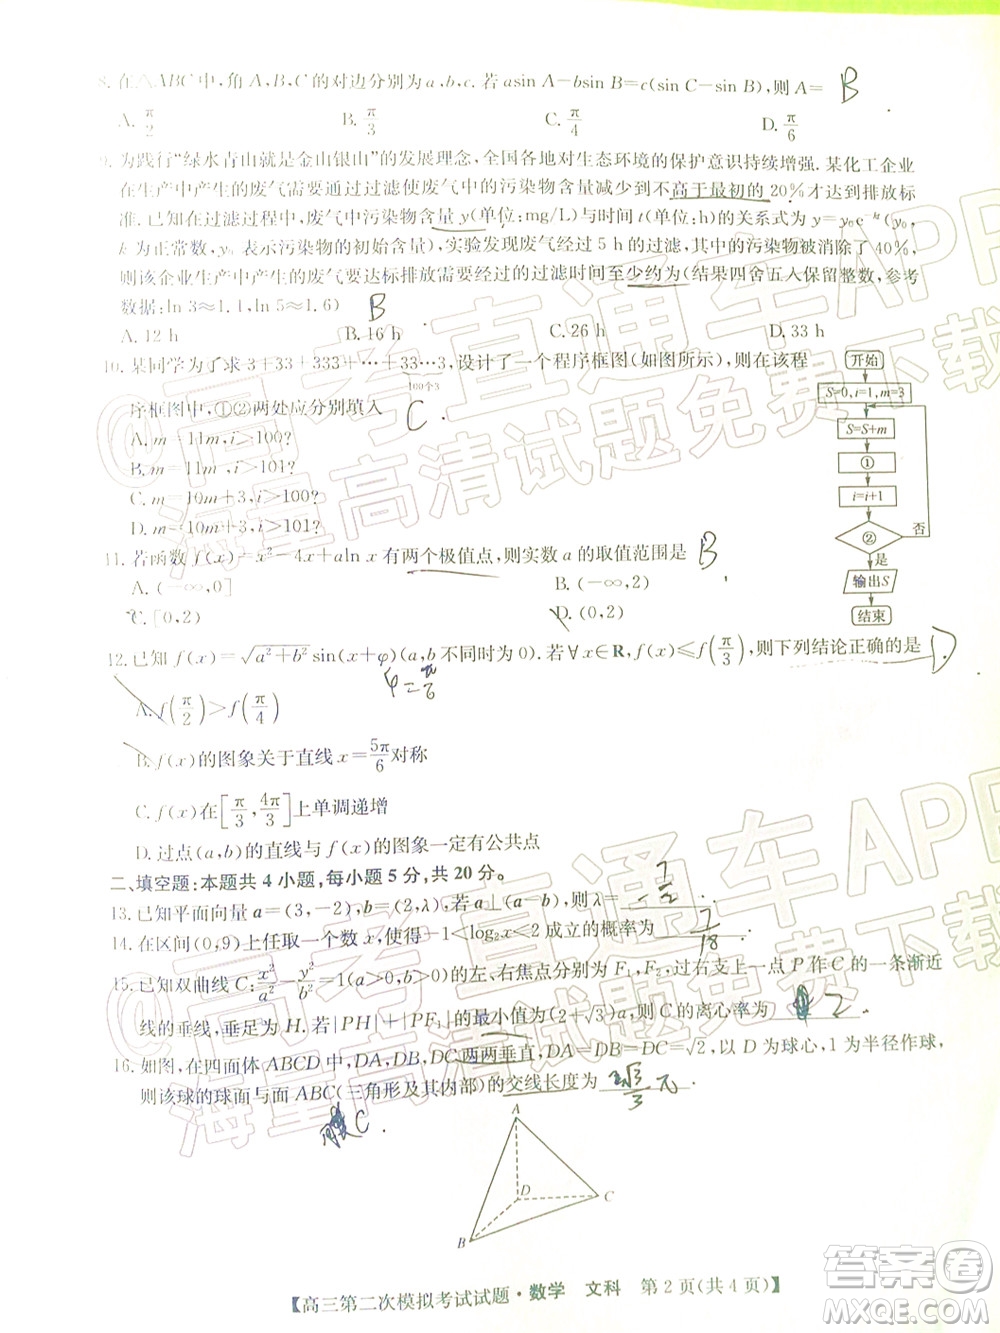 8. 在△ABC中,角A,B,C的对边分别为a,b,c.若asin A−bsin B=c(sin C−sin B),则A= B
A. π/2 B. π/3 C. π/4 D. π/6
9. 为践行“绿水青山就是金山银山”的发展理念,全国各地对生态环境的保护意识持续增强.某化工企业
在生产中产生的废气需要通过过滤使废气中的污染物含量减少到不高于最初的20%才达到排放标
准.已知在过滤过程中,废气中的污染物含量y(单位:mg/L)与时间t(单位:h)的关系式为y=y₀e⁻ᵏᵗ(y₀,
k为正常数,y₀表示污染物的初始含量),实验发现废气经过5 h的过滤,其中的污染物被消除了40%,
则该企业生产中产生的废气要达标排放需要经过的过滤时间至少约为(结果四舍五入保留整数,参考
数据:ln 3≈1.1,ln 5≈1.6) B
A. 12 h B. 16 h C. 26 h D. 33 h
10. 某同学为了求3+33+333+⋯+33⋯3,设计了一个程序框图(如图所示),在该程
100个3
序框图中,①②两处应分别填入 C.
A. m=11m,i>100?
B. m=11m,i>101?
C. m=10m+3,i>100?
D. m=10m+3,i>101?
开始
S=0,i=1,m=3
S=S+m
①
i=i+1
②
否
是
输出S
结束
11. 若函数f(x)=x²−4x+aln x有两个极值点,则实数a的取值范围是 B
A. (−∞,0] B. (−∞,2)
C. [0,2) D. (0,2)
12. 已知f(x)=√(a²+b²)sin(x+φ)(a,b不同时为0).若∀x∈R,f(x)≤f(π/3),则下列结论正确的是 D.
φ=π/6
A. f(π/2)>f(π/4)
B. f(x)的图象关于直线x=5π/6对称
C. f(x)在[π/3,4π/3]上单调递增
D. 过点(a,b)的直线与f(x)的图象一定有公共点
二、填空题:本题共4小题,每小题5分,共20分。
13. 已知平面向量a=(3,−2),b=(2,λ),若a⊥(a−b),则λ= 7/2.
14. 在区间(0,9)上任取一个数x,使得−1<log₂x≤2成立的概率为 7/18.
15. 已知双曲线C:x²/a²−y²/b²=1(a>0,b>0)的左、右焦点分别为F₁,F₂,过右支上一点P作C的一条渐近
线的垂线,垂足为H.若|PH|+|PF₁|的最小值为(2+√3)a,则C的离心率为 2.
16. 如图,在四面体ABCD中,DA,DB,DC两两垂直,DA=DB=DC=√2,以D为球心,1为半径作球,
则该球的球面与面ABC(三角形及其内部)的交线长度为 2√3/3 π.
A
D
C
B
【高三第二次模拟考试试题·数学 文科 第2页(共4页)】
@高考直通车APP
海量高清试题免费下载
@高考直通车APP
海量高清试题免费下载
答案圈
MXQE.COM